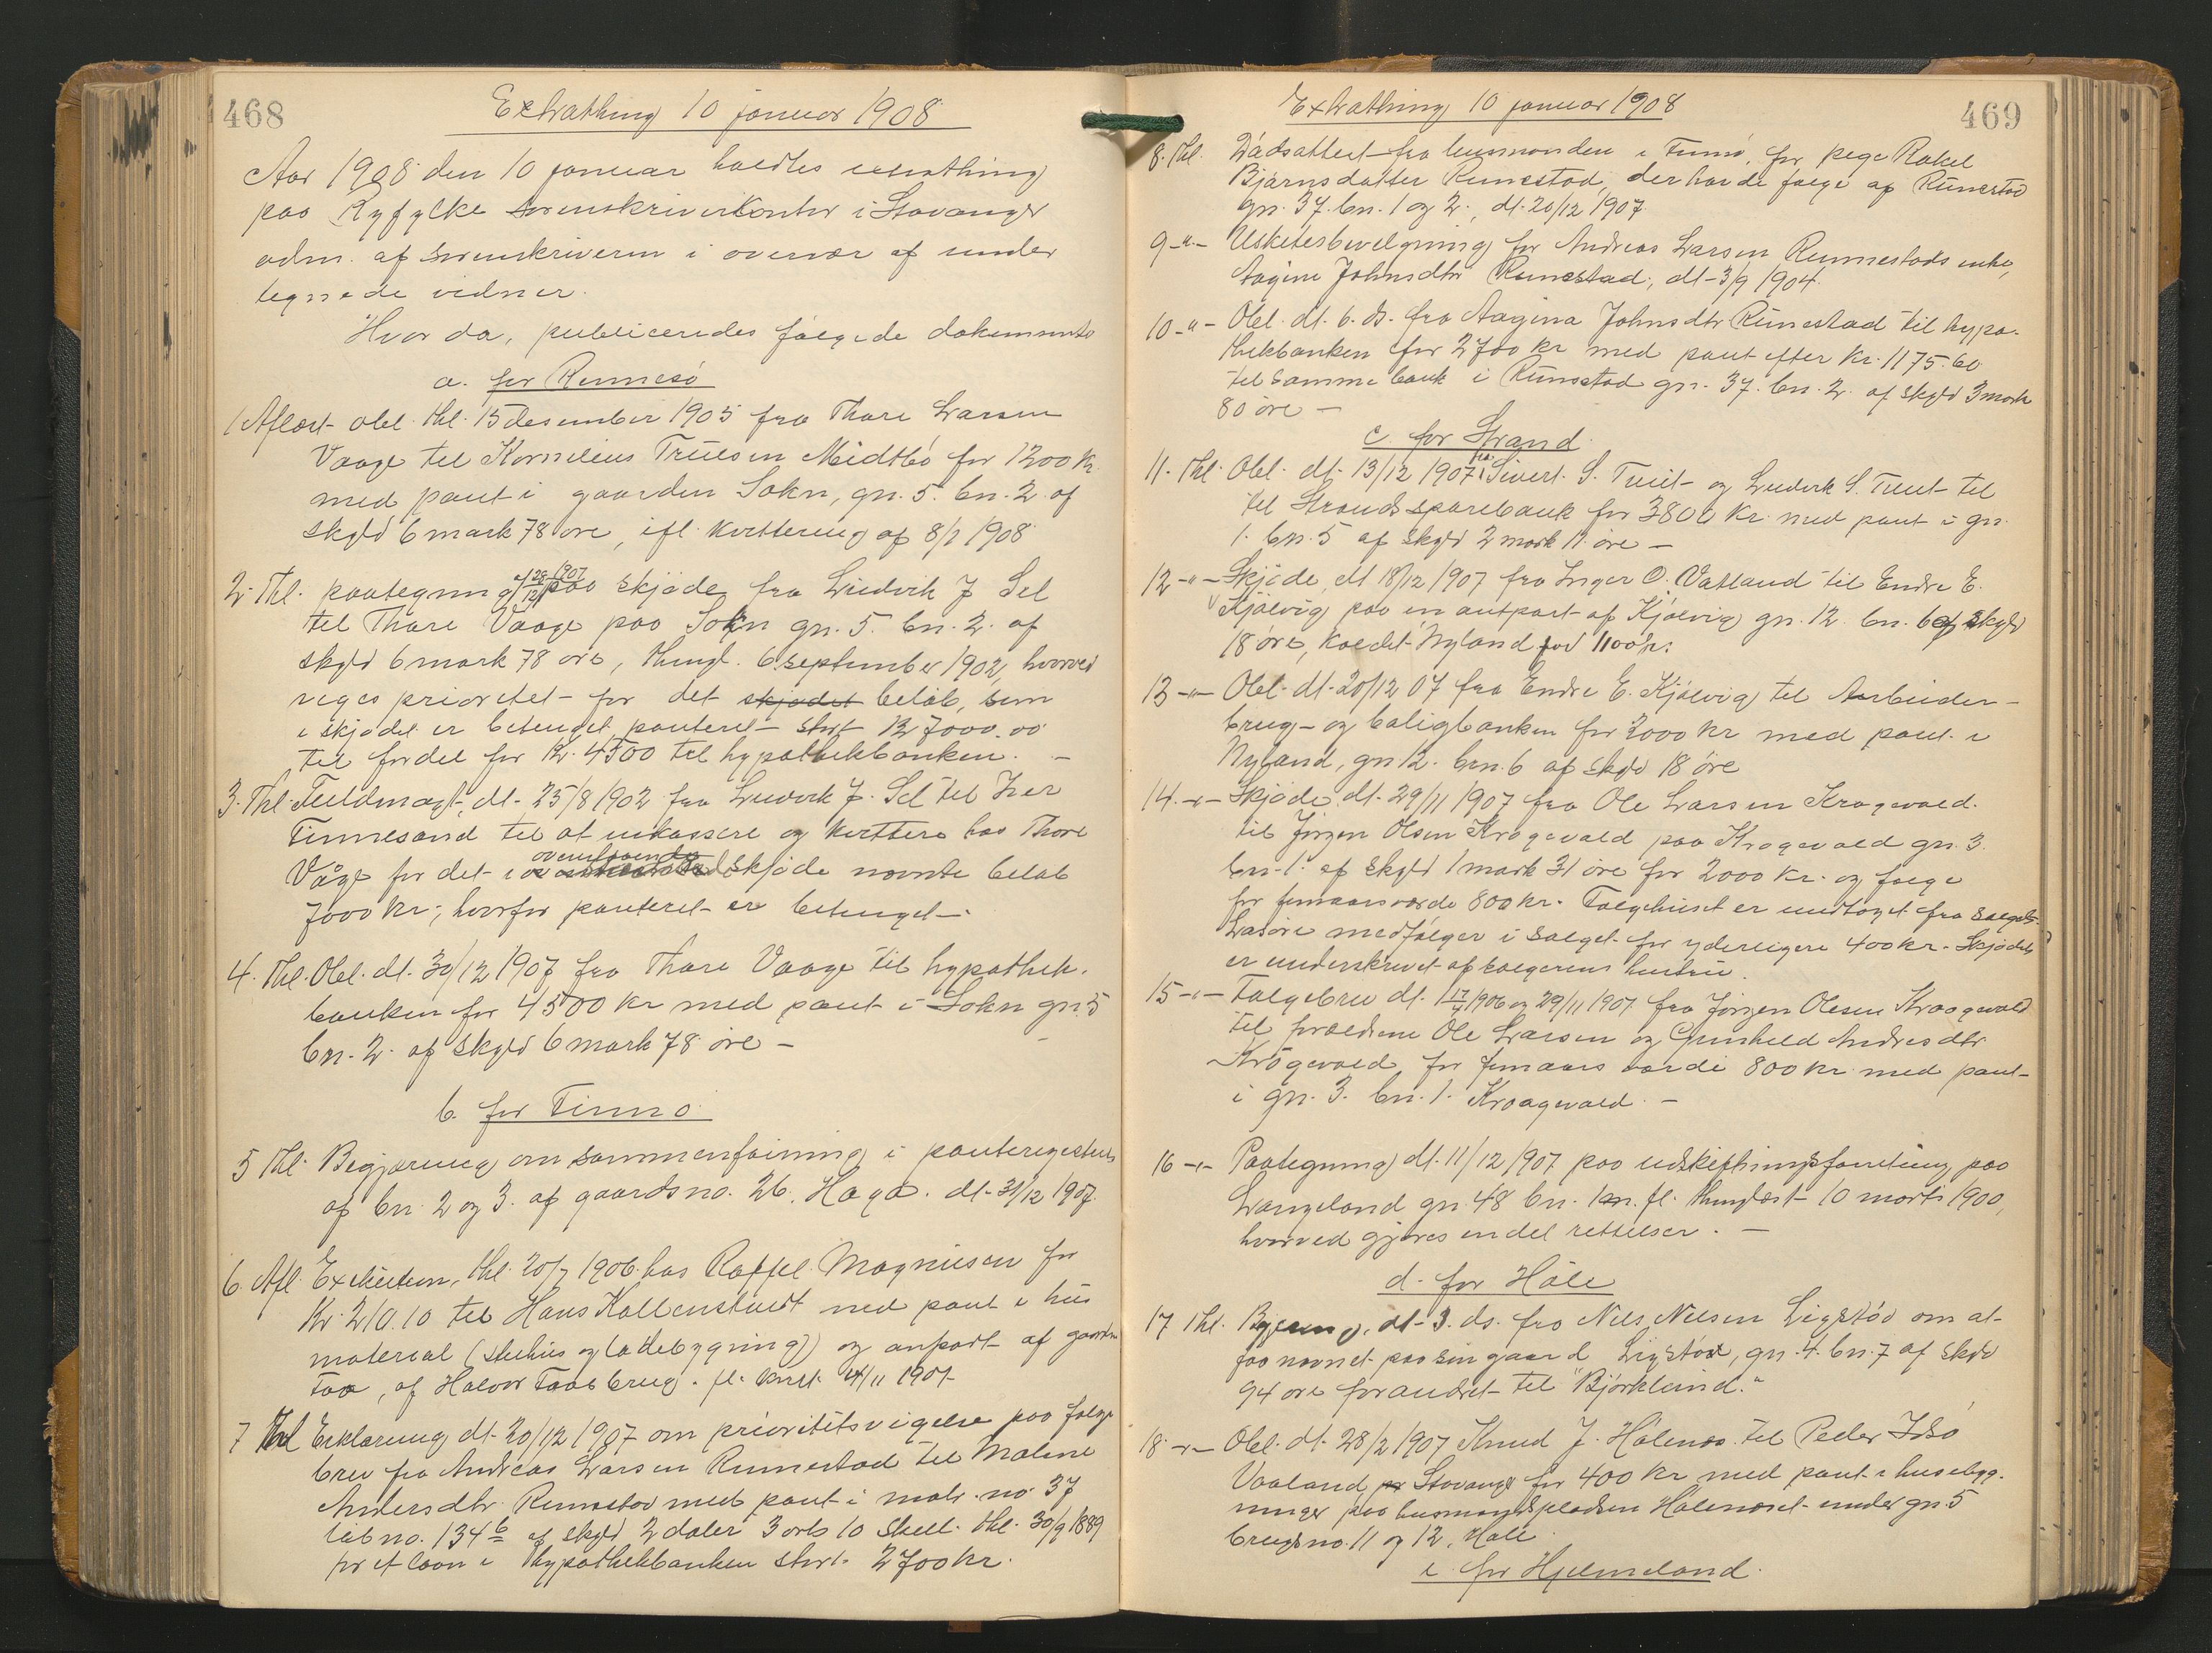 468
Extrathing 10 januar 1908
Aar 1908 den 10 januar holdtes extrathing
paa Ryfylke sorenskriverkontor i Stavanger
adm. af sorenskriveren i overvær af under
tegnede vidner.
Hvor da, publiceredes følgede dokumenter
a. for Rennesø
1 Aflæst obl. thl. 15 desember 1905 fra Thore Larsen
Vaage til Kornelius Truesen Midtbø for 1200 kr.
med pant i gaarden Sokn, gn. 5. bn. 2. af
skyld 6 mark 78 øre, ifl. kvittering af 8/1 1908
2. Thl. paategning af 28/12 1907 paa skjøde fra Ludvik J Sel
til Thore Vaage paa Sokn gn. 5. bn. 2. af
skyld 6 mark 78 øre, thingl. 6 september 1902, hvorved
viges prioritet for det skjødet beløb, som
i skjødet er betinget panteret stort Kr 7000.00
til fordel for Kr. 4500 til hypothekbanken. —
3. Thl. Fuldmagt, dt. 25/8 1902 fra Ludvik J. Sel til Iver
Finnesand til at inkassere og kvittere hos Thore
Våge for det i ovenstaaende skjøde nævnte beløb
7000 kr, hvorfor panteret er betinget —
4. Thl. Obl. dt. 30/12 1907 fra Thore Vaage til hypothek.
banken for 4500 kr med pant i Sokn gn. 5
bn. 2. af skyld 6 mark 78 øre —
b. for Finnø
5 Thl. Begjæring om sammenføining i panteregistret
af bn. 2 og 3. af gaardsno. 26. Haga. dt. 31/12 1907.
6. Afl. Exekution, thl. 20/7 1906 hos Raffel Magnusen for
Kr. 210.10 til Hans Kallenstuedt med pant i hus
material (stuehus og ladebygning) og anpart af gaarden
Faa, af Halvor Faas brug. fl. kvit. 14/11 1907
7 Thl Erklæring dt. 20/12 1907 om prioritetsvigelse paa følge
brev fra Andreas Larsen Runestad til Malene
Andersdtr. Runestad med pant i matr. no. 37
løbno. 134b af skyld 2 daler 3 ort 10 skill. thl. 30/9 1889
for et laan i Hypothekbanken stort 2700 kr.
Extrathing 10 januar 1908
469
8. Thl. Dødsattest fra lensmanden i Finnø, for pige Rakel
Bjørnsdatter Runestad, der havde følge af Runestad
gn. 37. bn. 1 og 2., dt. 20/12 1907.
9 -"- Uskiftesbevilgning for Andreas Larsen Runnestads enke,
Aagine Johnsdtr Runestad, dt. 3/9 1904.
10 -"- Obl. dt. 6. ds. fra Aagina Johnsdtr Runestad til hypo-
thekbanken for 2700 kr med pant efter kr. 1175.60
til samme bank i Runestad gn. 37. bn. 2. af skyld 3 mark
80 øre —
c. for Strand.
11. Thl. Obl. dt. 13/12 1907 fra Sivert S. Tveit og Ludvik S. Tveit til
til Strands sparebank for 3800 kr. med pant i gn.
1. bn. 5 af skyld 2 mark 11 øre —
12 -"- Skjøde, dt 18/12 1907 fra Inger O. Vatland til Endre E.
Kjølvig paa en antpart af Kjølvig gn. 12. bn. 6 af skyld
18 øre, kaldet Nyland for 1100 kr.
13 -"- Obl. dt. 20/12 07 fra Endre E. Kjølvig til Aarbeider-
brug- og boligbanken for 2000 kr med pant i
Nyland, gn 12. brn. 6 af skyld 18 øre
14. -"- Skjøde, dt. 29/11 1907 fra Ole Larsen Kragevald.
til Jørgen Olsen Kragevald paa Kragevald gn. 3.
bn. 1. af skyld 1 mark 31 øre for 2000 kr. og følge
for femaarsværde 800 kr. Følgehuset er undtaget fra salget.
Løsøre medfølger i salget for yderligere 400 kr. Skjødet
er underskrevet af sælgerens hustru.
15 -"- Følgebrev dt. 17/ 1906 og 29/11 1907 fra Jørgen Olesen Kraagevald
til forældrene Ole Larsen og Gunhild Andresdtr
Krågevald for femaars værdi 800 kr med pant
i gn. 3. bn. 1. Kraagevald. —
16 -"- Paategning dt. 11/12 1907 paa udskiftningsforretning paa
Langeland gn. 48 bn. 1 m. fl. thinglæst 10 marts 1900,
hvorved gjøres endel rettelser. —
d. for Høle
17 Thl. Begjæring, dt. 3. ds. fra Nils Nilsen Ligstød om at
faa navnet paa sin gaard Ligstød, gn. 4. bn. 7 af skyld
94 øre forandret til "Bjørklund."
18. -"- Obl. dt. 28/2 1907 Knud J. Hølenæs til Peder Idsø
Vaaland pr Stavanger for 400 kr med pant i husebyg-
ninger paa husmandspladsen Hølenæset under gn. 5
brugsno. 11 og 12, Høle
e for Hjelmeland.